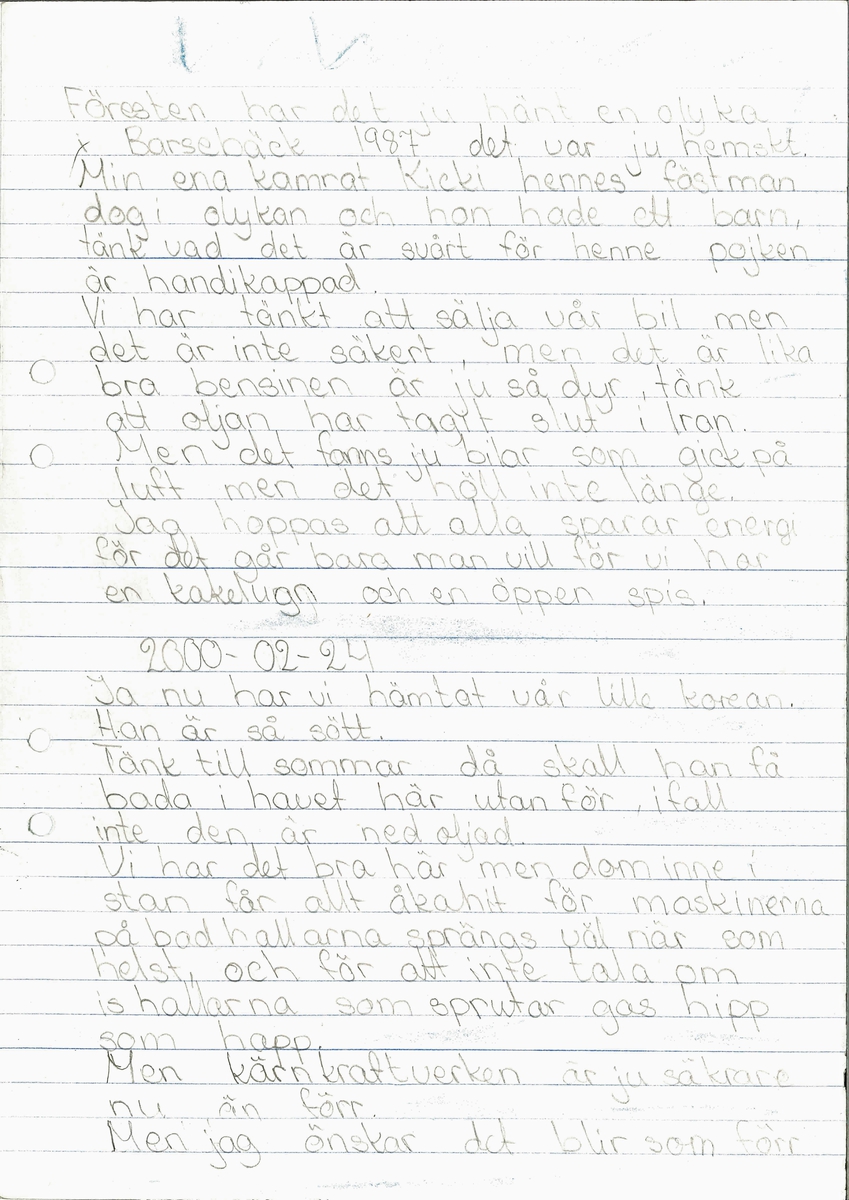 Föresten har det ju hänt en olyka
i Barsebäck 1987 det var ju hemskt.
Min ena kamrat Kicki hennes fästman
dog i olykan och hon hade ett barn,
tänk vad det är svårt för henne pojken
är handikappad.
Vi har tänkt att sälja vår bil men
det är inte säkert, men det är lika
bra bensinen är ju så dyr, tänk
att oljan har tagit slut i Iran.
Men det fanns ju bilar som gick på
luft men det höll inte länge.
Jag hoppas att alla sparar energi
för det går bara man vill för vi har
en kakelugn och en öppen spis.
2000-02-24
Ja nu har vi hämtat vår lille korean.
Han är så sött.
Tänk till sommar då skall han få
bada i havet här utan för, ifall
inte den är ned oljad.
Vi har det bra här men dom inne i
stan får allt åka hit för maskinerna
på bad hallarna sprängs väl när som
helst, och för att inte tala om
is hallarna som sprutar gas hipp
som happ.
Men kärnkraftverken är ju säkrare
nu än förr.
Men jag önskar det blir som förr